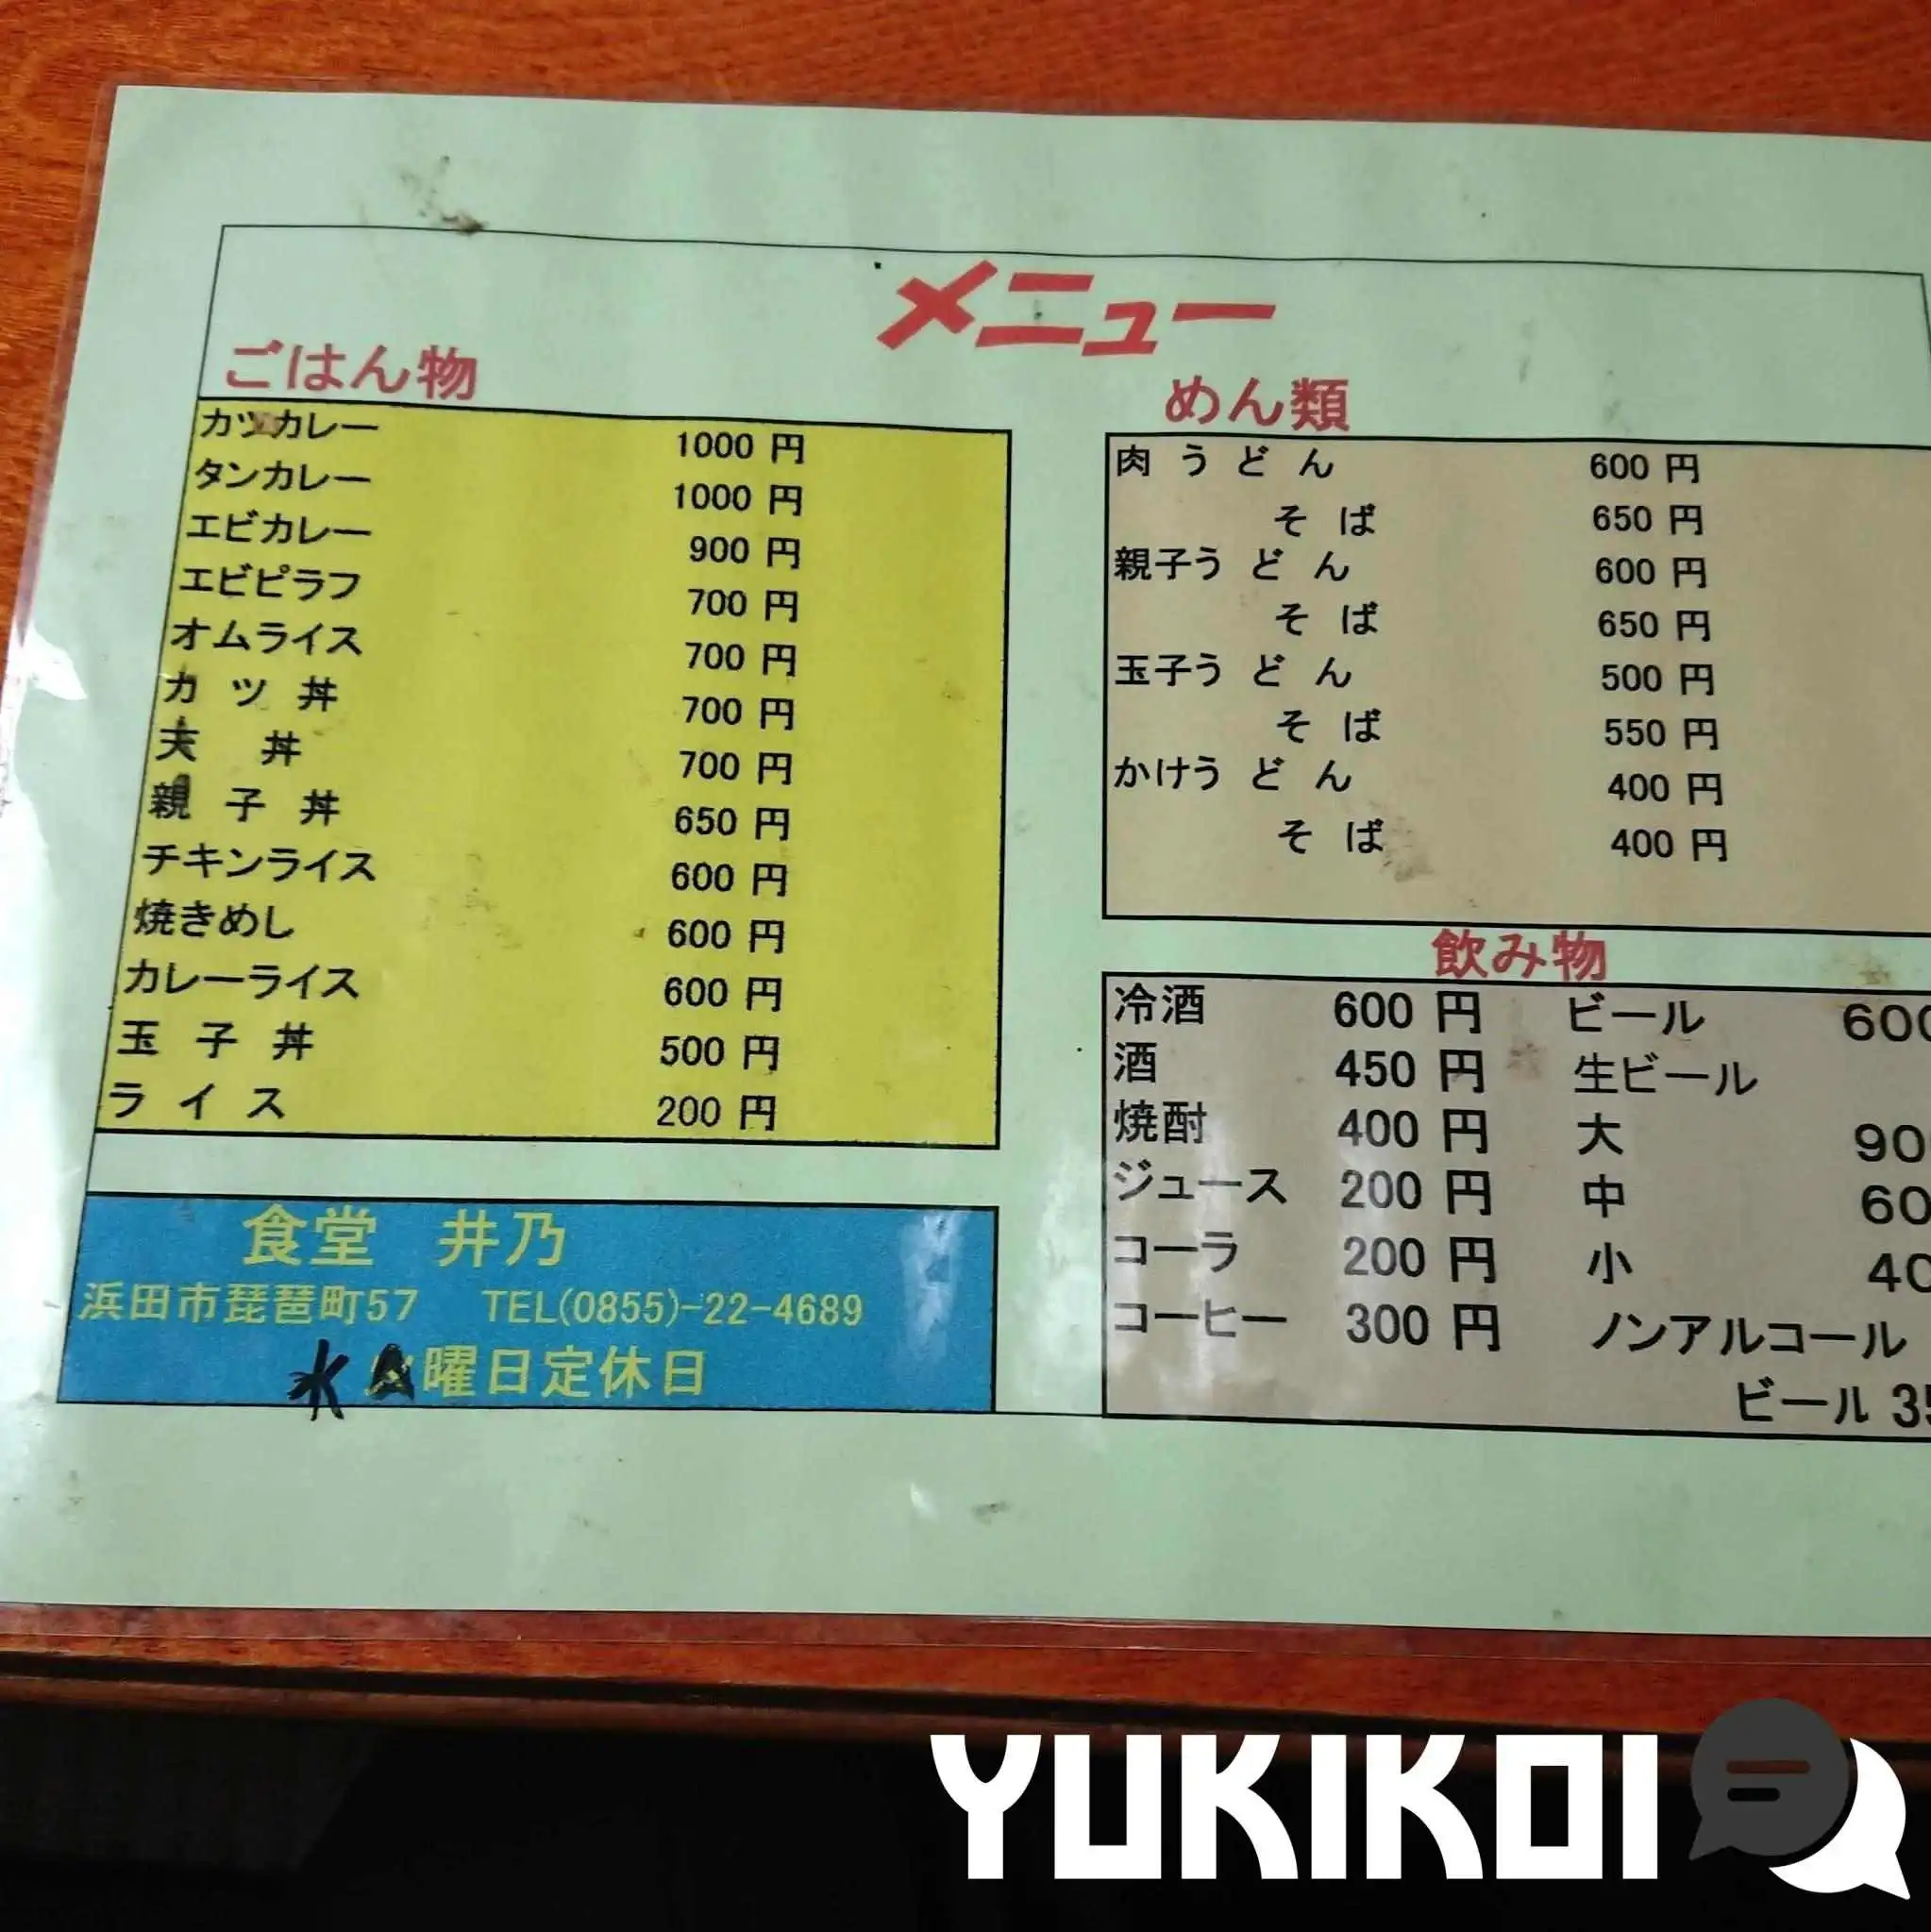 メニュー
ごはん物
カツカレー 1000 円
タンカレー 1000 円
エビカレー 900 円
エビピラフ 700 円
オムライス 700 円
カツ丼 700 円
天丼 700 円
親子丼 650 円
チキンライス 600 円
焼きめし 600 円
カレーライス 600 円
玉子丼 500 円
ライス 200 円
めん類
肉うどん 600 円
そば 650 円
親子うどん 600 円
そば 650 円
玉子うどん 500 円
そば 550 円
かけうどん 400 円
そば 400 円
飲み物
冷酒 600 円 ビール 600
酒 450 円 生ビール
焼酎 400 円 大 90
ジュース 200 円 中 60
コーラ 200 円 小 40
コーヒー 300 円 ノンアルコール
ビール 35
食堂 井乃
浜田市琵琶町57 TEL(0855)-22-4689
水曜日定休日
YUKIKOI